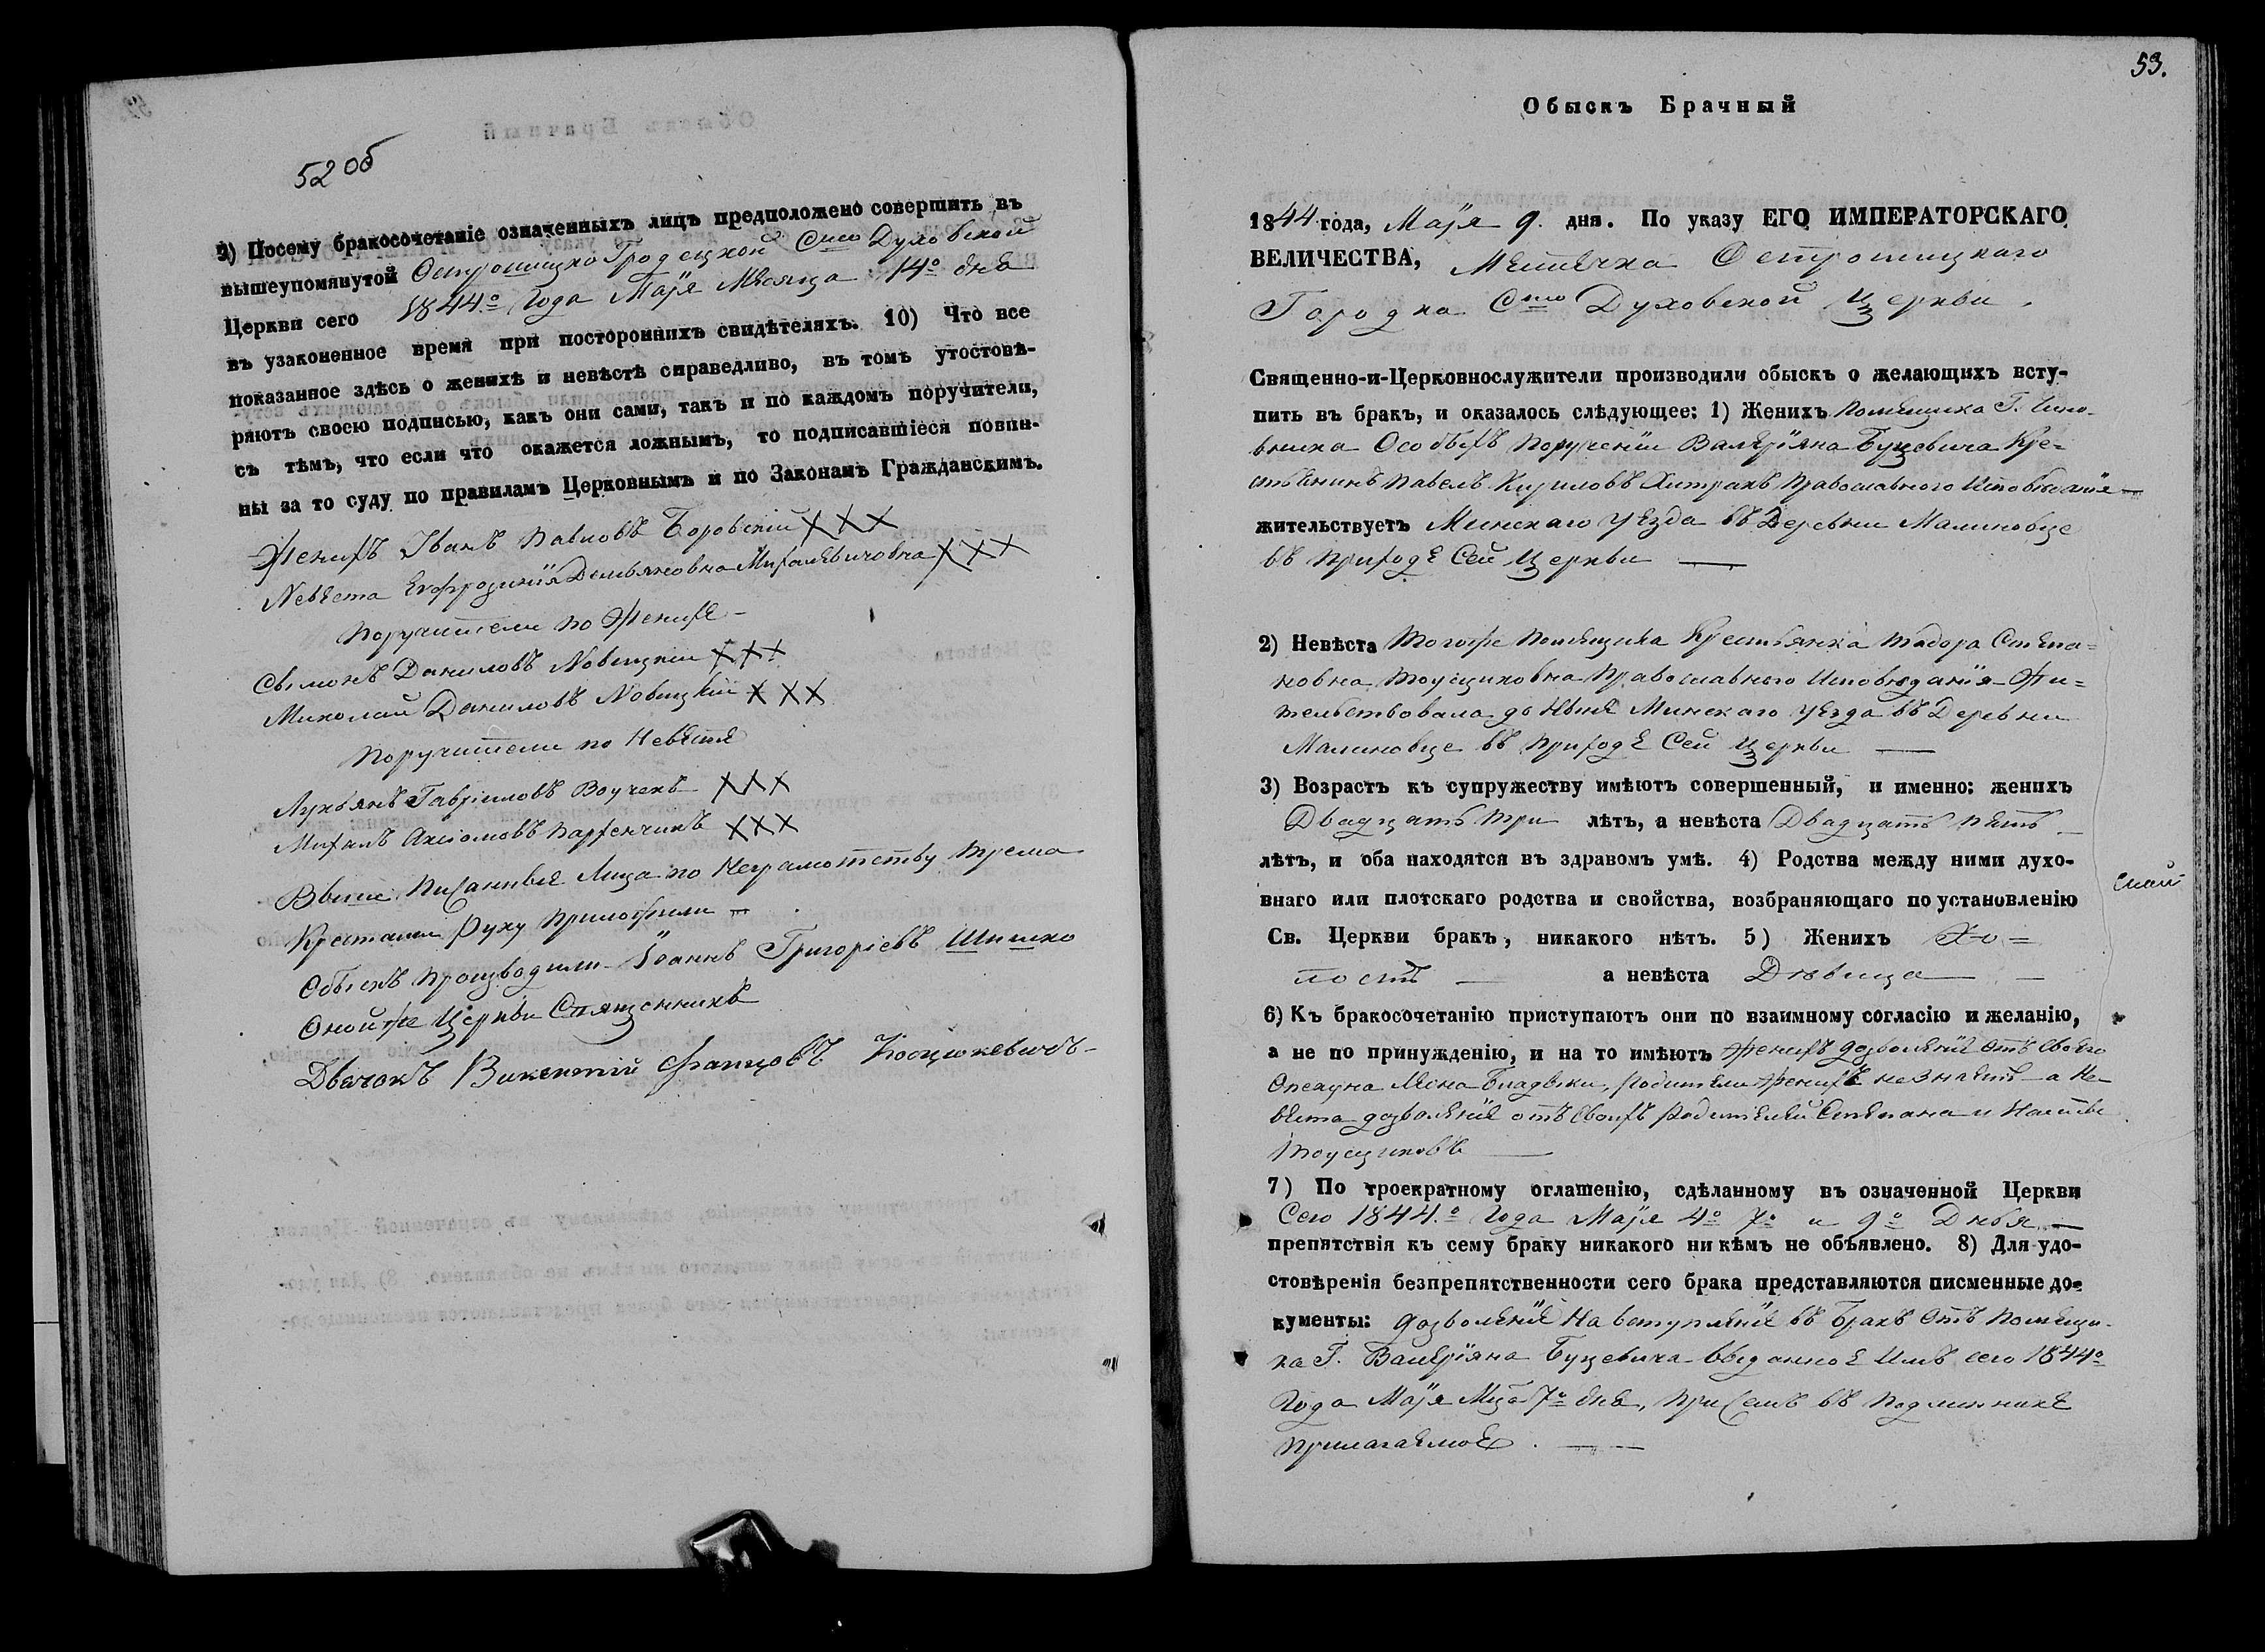 52 об
9) Посему бракосочетаніе означенныхъ лицъ предположено совершить въ
вышеупомянутой Острошицко Градецкой Свто Духовской
Церкви сего 1844.º Года Маія Мѣсяца 14º дня
въ узаконенное время при постороннихъ свидѣтеляхъ. 10) Что все
показанное здѣсь о женихѣ и невѣстѣ справедливо, въ томъ утостовѣ-
ряютъ своею подписью, какъ они сами, такъ и по каждомъ поручители,
съ тѣмъ, что если что окажется ложнымъ, то подписавшіеся повин-
ны за то суду по правиламъ Церковнымъ и по Законамъ Гражданскимъ.
Женихъ Іванъ Павловъ Боровскій ХХХ
Невѣста Евфрозинія Демьяновна Михалевичовна ХХХ
Поручители по Женихе
Сымонъ Даниловъ Новицкій ХХХ
Миколай Даниловъ Новицкій ХХХ
Поручители по Невѣстѣ
Лукьянъ Гавріиловъ Воучекъ ХХХ
Михалъ Парфенчикъ ХХХ
Выше Писанныя Лица по Неграмотству трема
Крестами Руку приложили
Обыскъ производили Іоаннъ Григоріевъ Шишко
Онойже Церкви Священникъ
Дьячокъ Викентій Францовъ
53.
Обыскъ Брачный
1844 года, Маія 9. дня. По указу ЕГО ИМПЕРАТОРСКАГО
ВЕЛИЧЕСТВА, Местечка Острошицкаго
Городка Свто Духовской Церкви
Священно-и-Церковнослужители производили обыскъ о желающихъ всту-
пить въ бракъ, и оказалось слѣдующее: 1) Женихъ Помещика Г. Чино-
вника Особыхъ порученіи Валеріяна Буцевича Кре-
стьенинъ Павелъ Кириловъ Хитракъ Православного Исповѣданія
жительствуетъ Минскаго Уезда въ Деревни Малиновце
въ приходе Сей Церкви
2) Невѣста Тогоже помещика Крестьянка Тадора Степа-
новна Православного Исповѣданія Жи-
тельствовала до Ныне Минскаго уезда въ Деревни
Малиновце въ приходе Сей Церкви
3) Возрастъ къ супружеству имѣютъ совершенный, и именно: женихъ
Двадцать три лѣтъ, а невѣста Двадцать пять
лѣтъ, и оба находятся въ здравомъ умѣ. 4) Родства между ними духо-
внаго или плотскаго родства и свойства, возбраняющаго по установленію
Св. Церкви бракъ, никакого нѣтъ. 5) Женихъ Хо-
лостъ а невѣста Дѣвица
6) Къ бракосочетанію приступаютъ они по взаимному согласію и желанію,
а не по принужденію, и на то имѣютъ Женихъ дозволеніе отъ своего
Опекуна Родители Жениха а Не-
веста дозволеніе отъ своихъ Родителей Степана и Насты
7) По троекратному оглашенію, сдѣланному въ означенной Церкви
Сего 1844.º Года Маія 4º 7º и 9º Дня
препятствія къ сему браку никакого ни кѣмъ не объявлено. 8) Для удо-
стовѣренія безпрепятственности сего брака представляются писменные до-
кументы: дозволеніе на вступленіе въ Бракъ отъ помещи-
ка Г. Валеріяна Буцевича выданное Имъ сего 1844º
Года Маія Мца 7º дня, при семъ въ подлиннике
прилагаемое.